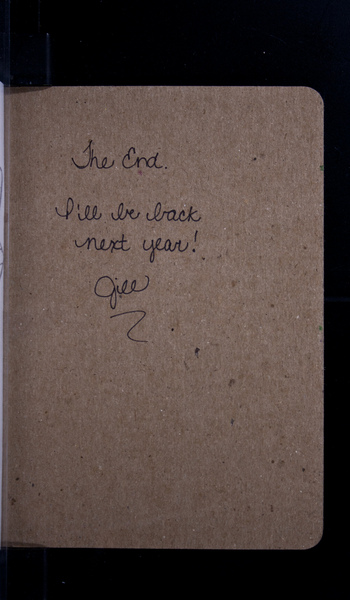 The End.
I'll be back
next year!
Jill